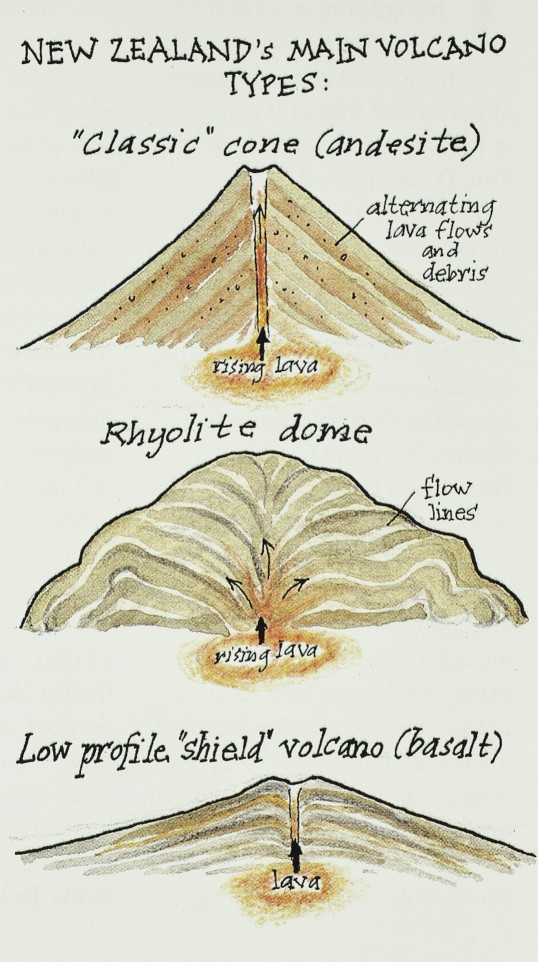 NEW ZEALAND's MAIN VOLCANO
TYPES:
"Classic" cone (andesite)
alternating
lava flows
and
debris
rising lava
Rhyolite dome
flow
lines
rising lava
Low profile "shield" volcano (basalt)
lava